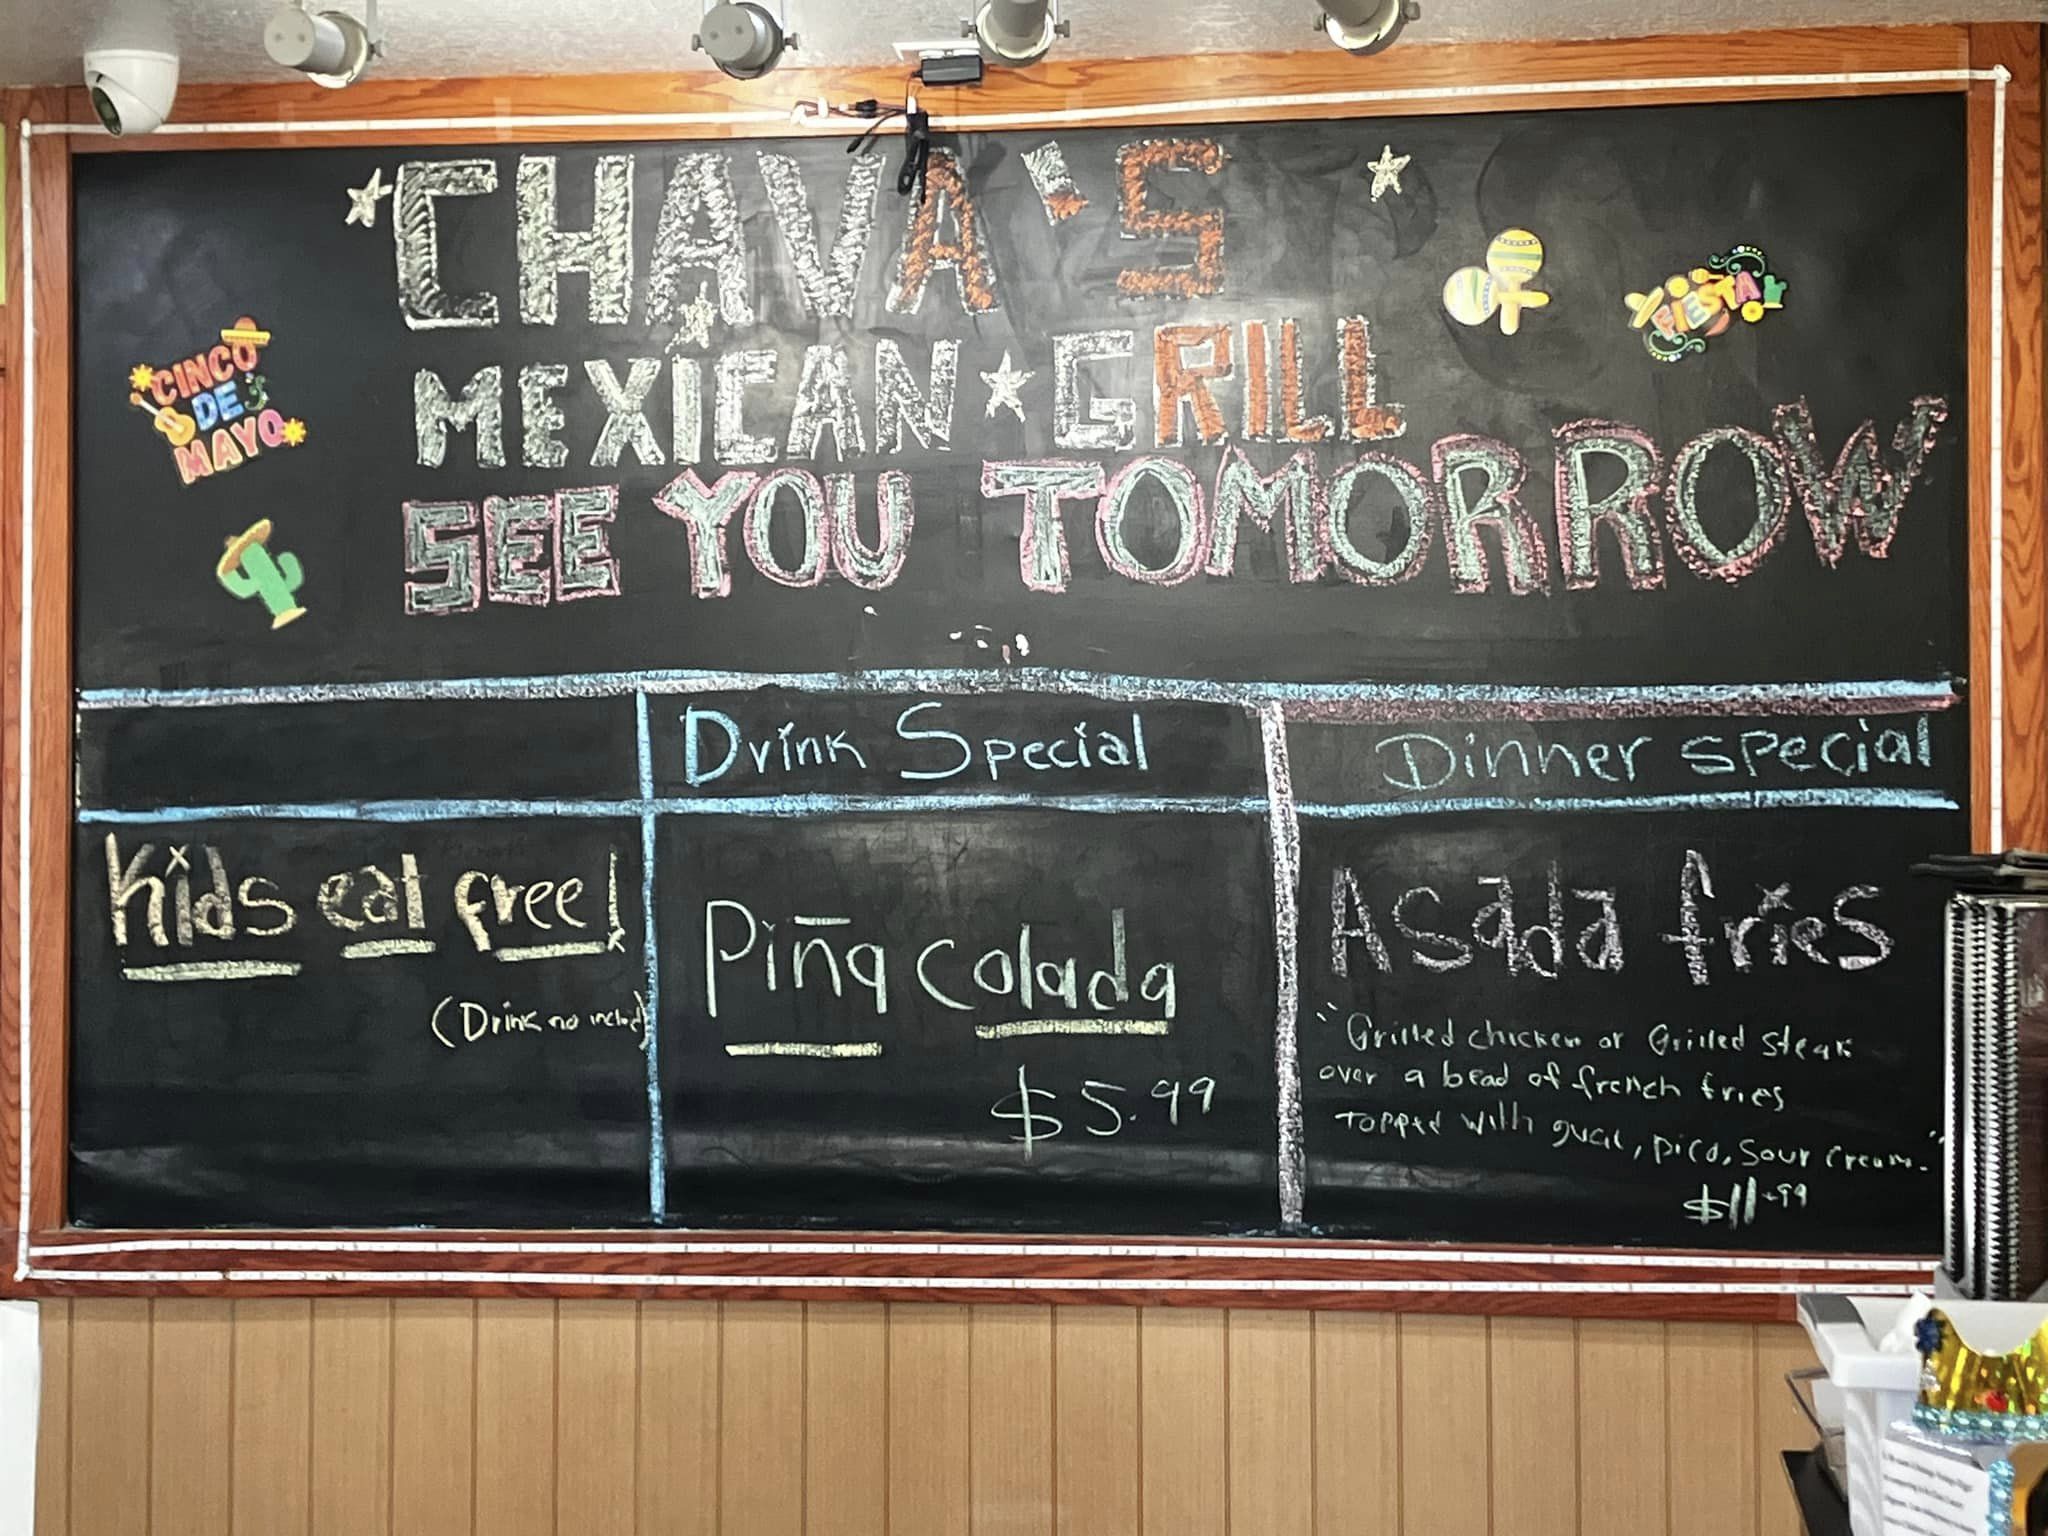 CHAVA'S
MEXICAN GRILL
SEE YOU TOMORROW
CINCO
DE
MAYO
FIESTA
Drink Special
Dinner special
Kids eat free!
(Drink no includ)
Piña colada
$5.99
Asada fries
"Grilled chicken or Grilled steak
over a bead of french fries
topped with guac, pico, sour cream."
$11.99